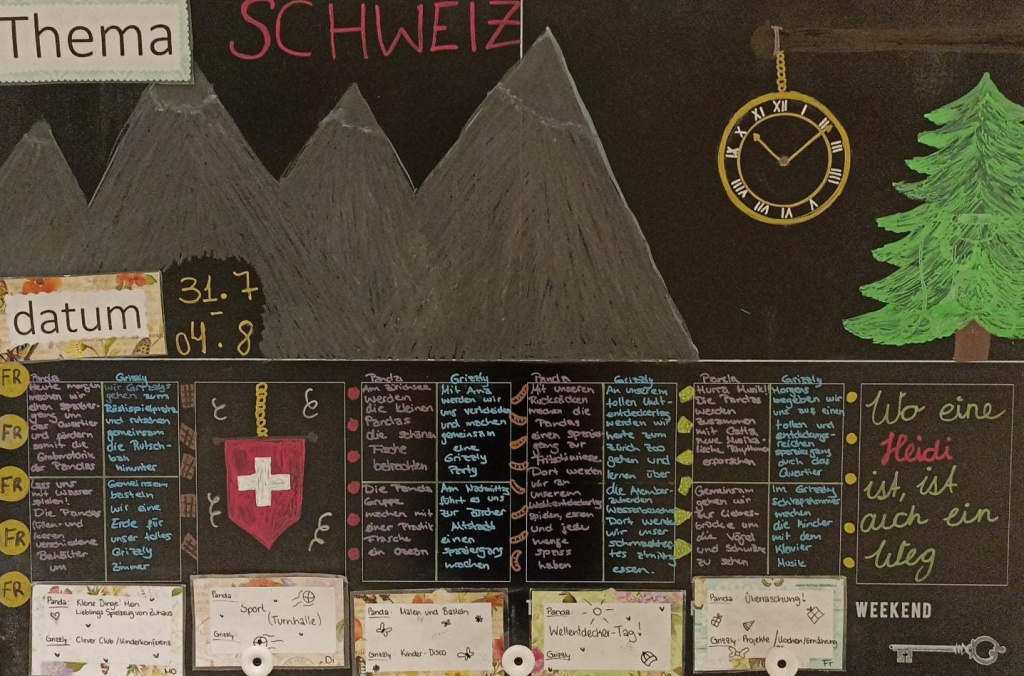 Thema
SCHWEIZ
XII
I
II
III
IIII
V
VI
VII
VIII
IX
X
XI
datum
31. 7
-
04. 8
FR
FR
FR
FR
FR
Panda
Heute morgen
machen wir
einen spazier-
gang um
das Quartier
und fördern
somit die
Grobmotorik
der Pandas
Grizzly
wir Grizzlys
gehen zum
Röslispielplatz
und rutschen
gemeinsam
die Rutsch-
bahn
hinunter
Lass uns
mit Wasser
spielen!
Die Pandas
füllen und
leeren
verschiedene
Behälter
um
Gemeinsam
basteln
wir eine
Erde für
unser tolles
Grizzly
Zimmer
Panda
werden
die kleinen
Pandas
die schönen
Fische
betrachten
Grizzly
Mit Anna
werden wir
uns verkleiden
und machen
gemeinsam
eine
Grizzly
Party
Die Panda
Gruppe
machen mit
einer
Flasche
ein Ozean
Am Nachmittag
führt es uns
zur Zürcher
Altstadt
einen
spaziergang
machen
Panda
Mit unseren
Rucksäcken
machen die
Pandas
einen spazier
gang zur
Dort werden
wir an
unserem
spielen, essen
und jede
menge
spass
haben
Grizzly
An unserem
tollen Welt-
entdeckertag
werden wir
heute zum
Zürich Zoo
gehen und
lernen über
die Atembe-
raubenden
Dort werden
wir unser
schmackhaf-
tes zmittag
essen.
Panda
Hurra Musik!
Die Pandas
werden
zusammen
mit
neue Musika-
lische Rhythmen
erforschen
Grizzly
Morgens
begeben wir
uns auf einen
tollen und
entdeckungs-
reichen
spaziergang
durch das
Quartier
Gemeinsam
gehen wir
zur Liebes-
brücke um
die Vögel
und Schwäne
zu sehen
Im Grizzly
Schlafzimmer
machen
die kinder
mit dem
Klavier
Musik
Wo eine
Heidi
ist, ist
auch ein
Weg
Panda: Kleine Dinge: Mein
Lieblings Spielzeug von Zuhaus
Grizzly: Clever Club / Kinderkonferenz
Mo
Panda:
Sport
(Turnhalle)
Grizzly:
Di
Panda: Malen und Basteln
Grizzly: Kinder-Disco
Panda:
Weltentdecker-Tag!
Grizzly:
Do
Panda: Überraschung!
Grizzly: Projekte / Kochen/Ernährung
Fr
WEEKEND